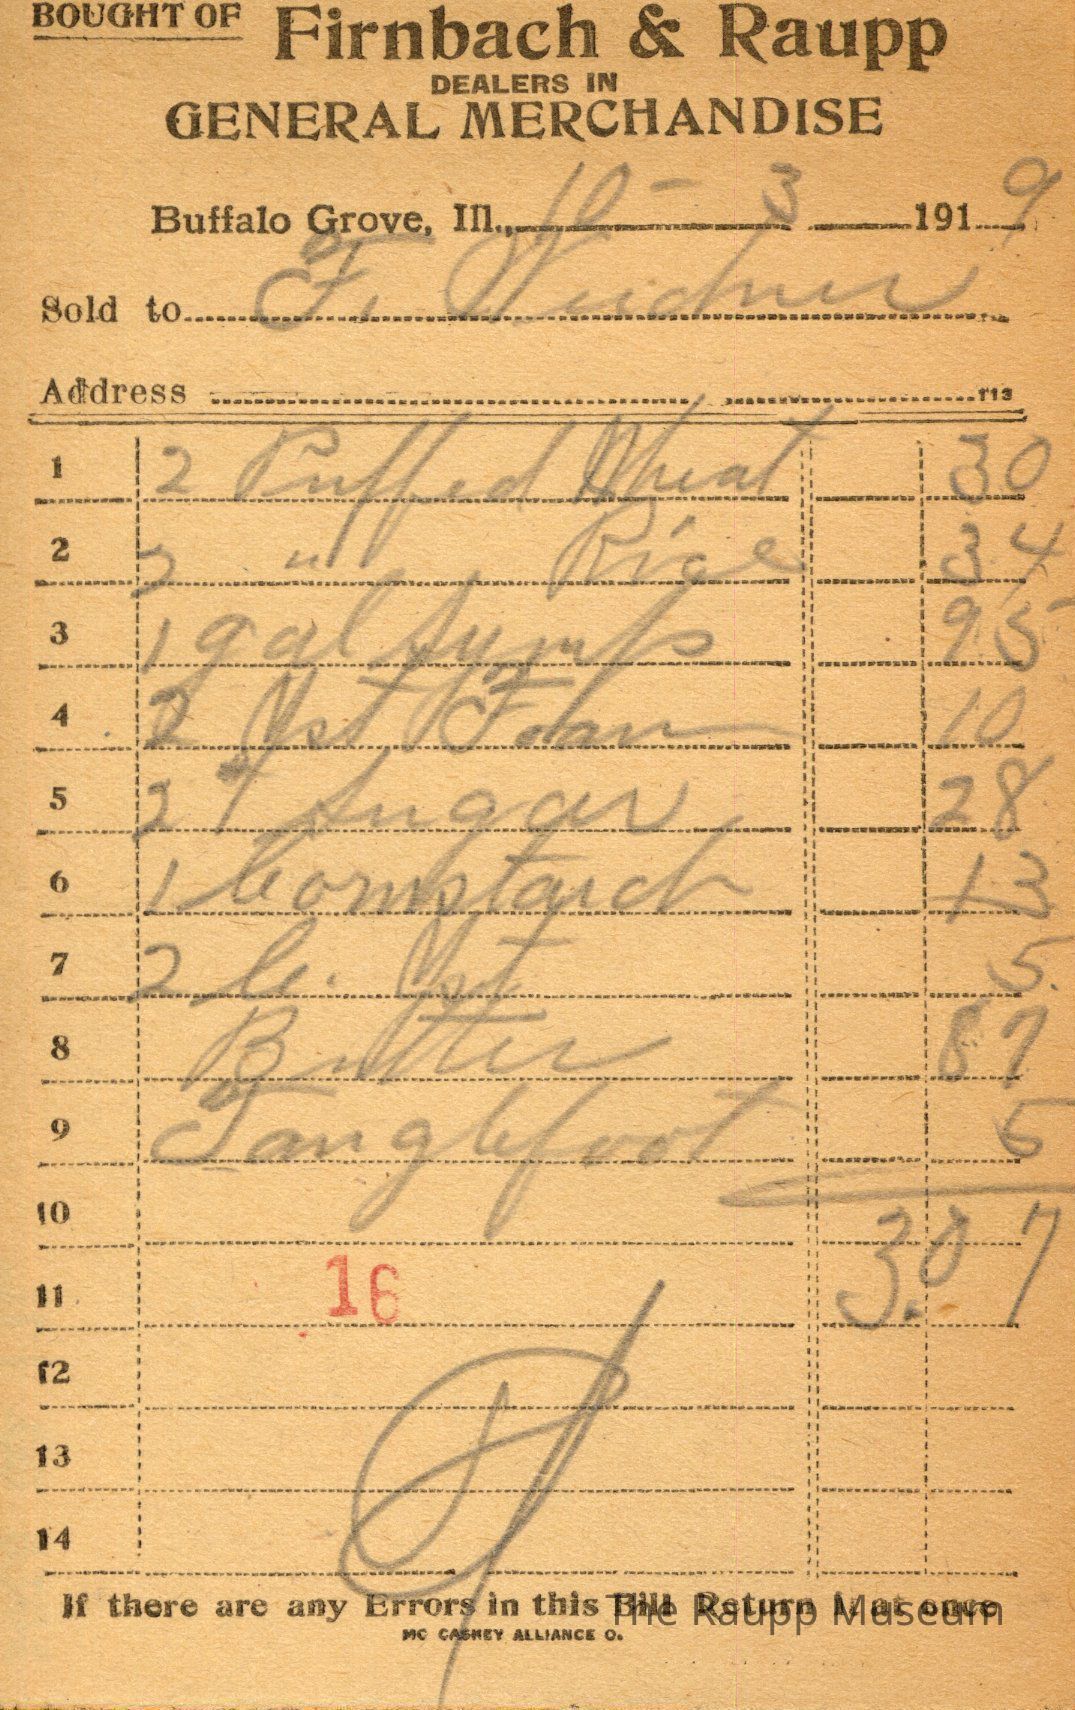 BOUGHT OF Firnbach & Raupp
DEALERS IN
GENERAL MERCHANDISE
Buffalo Grove, Ill., 10 - 3 1919
Sold to F. Weidner
Address 113
1 2 Puffed Wheat 30
2 2 " Rice 34
3 1 gal Syrup 95
4 2 Yst Foam 10
5 2 # Sugar 28
6 1 Cornstarch 13
7 2 C. Yst 5.
8 Butter 87
9 Tanglefoot 5
10 3.07
11 16
12
13
14
If there are any Errors in this Bill Return it at once
The Raupp Museum
MC CASKEY ALLIANCE O.